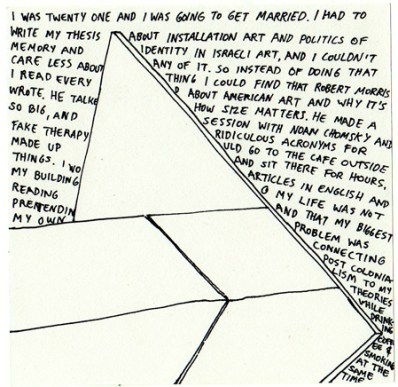 I WAS TWENTY ONE AND I WAS GOING TO GET MARRIED. I HAD TO
WRITE MY THESIS ABOUT INSTALLATION ART AND POLITICS OF
MEMORY AND IDENTITY IN ISRAELI ART, AND I COULDN'T
CARE LESS ABOUT ANY OF IT. SO INSTEAD OF DOING THAT
I READ EVERY THING I COULD FIND THAT ROBERT MORRIS
WROTE. HE TALKE D ABOUT AMERICAN ART AND WHY IT'S
SO BIG, AND HOW SIZE MATTERS. HE MADE A
FAKE THERAPY SESSION WITH NOAM CHOMSKY AND
MADE UP RIDICULOUS ACRONYMS FOR
THINGS. I WO ULD GO TO THE CAFE OUTSIDE
MY BUILDING AND SIT THERE FOR HOURS,
READING ARTICLES IN ENGLISH AND
PRETENDIN G MY LIFE WAS NOT
MY OWN AND THAT MY BIGGEST
PROBLEM WAS
CONNECTING
POST COLONIA
LISM TO MY
THEORIES
WHILE
DRINK
ING
COFF
EE &
SMOKING
AT THE
SAME
TIME